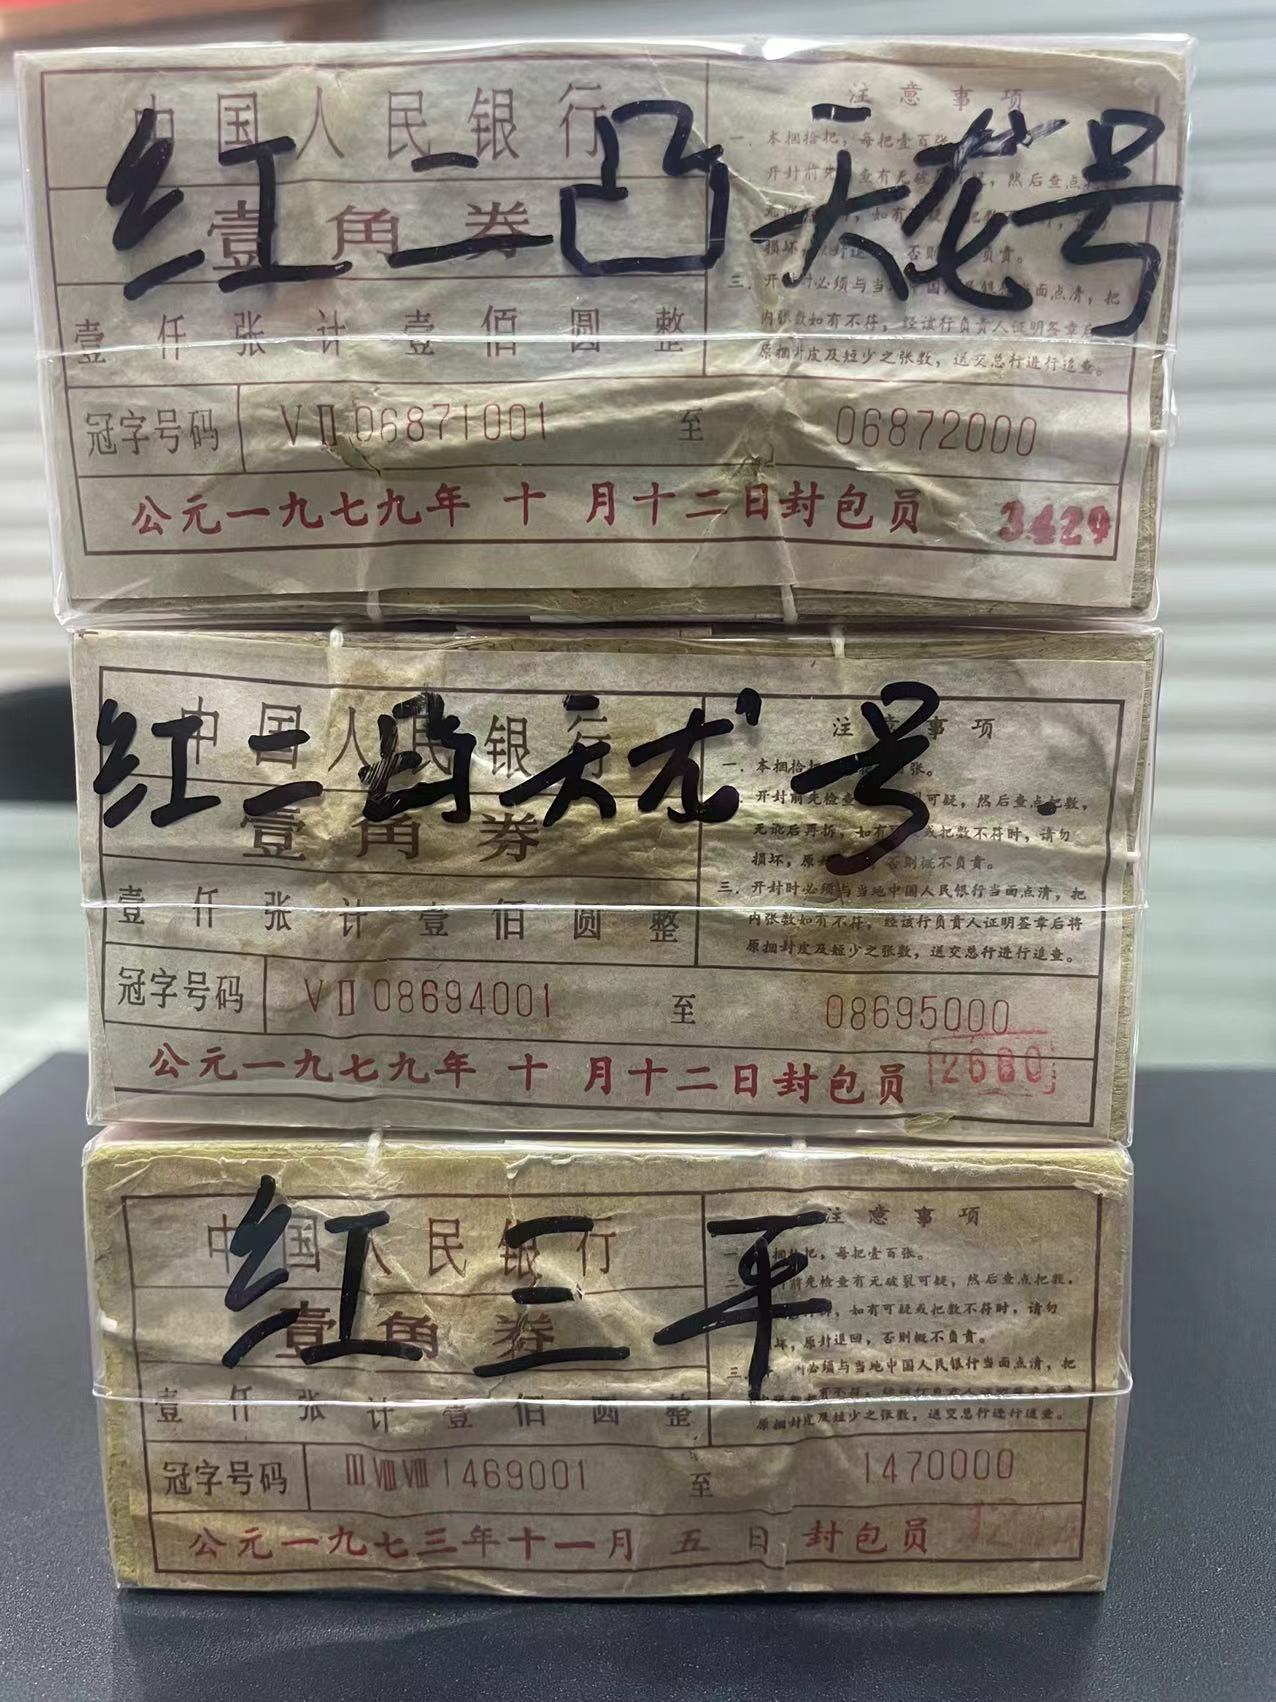 中国人民银行
红二凸天龙号
壹角券
壹仟张计壹佰圆整
注意事项
一．本捆拾把，每把壹百张
开封前先查有无破可疑，然后查点
损坏，原封退，否则负责。
三．开封时必须与当中国人民银行当面点清，把
内张数如有不符，经该行负责人证明签章后
原捆封皮及短少之张数，送交总行进行追查。
冠字号码 VⅡ06871001 至 06872000
公元一九七九年 十 月十二日封包员 3429
中国人民银行
红二凸天龙号
壹角券
壹仟张计壹佰圆整
注意事项
一．本捆拾把张。
开封前先检查可疑，然后查点把数，
无讹后再拆，如有或把数不符时，请勿
损坏，原否则概不负责。
三．开封时必须与当地中国人民银行当面点清，把
内张数如有不符，经该行负责人证明签章后将
原捆封皮及短少之张数，送交总行进行追查。
冠字号码 VⅡ08694001 至 08695000
公元一九七九年 十 月十二日封包员 2680
中国人民银行
红三平
壹角券
壹仟张计壹佰圆整
注意事项
捆拾把，每把壹百张。
二．前先检查有无破裂可疑，然后查点把数，
如有可疑或把数不符时，请勿
坏，原封退回，否则概不负责。
三．必须与当地中国人民银行当面点清，把
原捆封皮及短少之张数，送交总行进行追查。
冠字号码 ⅢⅧⅧ1469001 至 1470000
公元一九七三年十一月 五 日 封包员